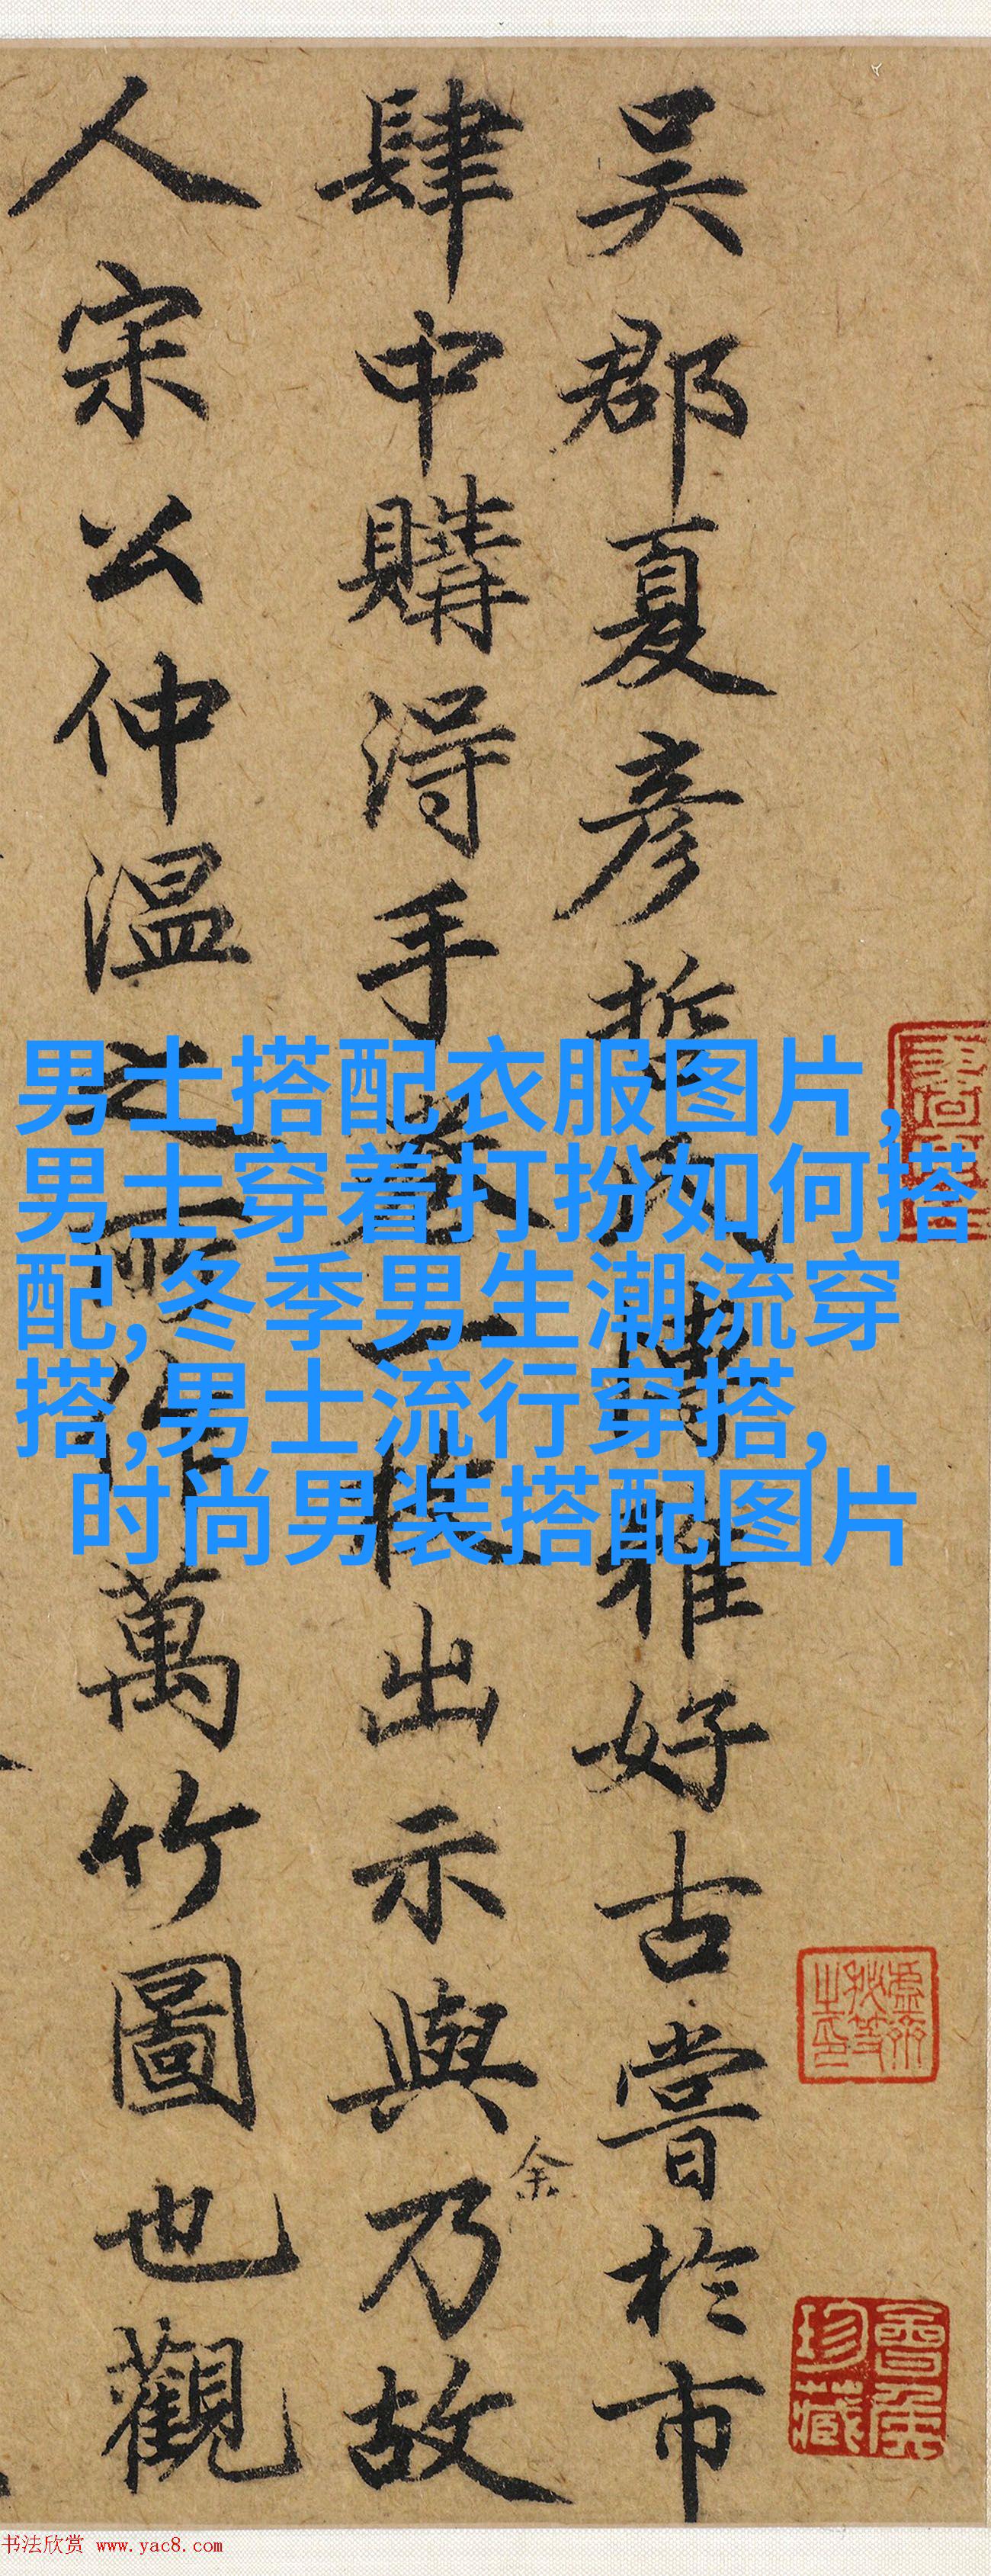 吴郡夏彦哲氏博雅好古嘗於市
肆中購得手卷一出示與余乃故
人宋公仲溫之所作萬竹圖也觀
男士搭配衣服图片,
男士穿着打扮如何搭
配,冬季男生潮流穿
搭,男士流行穿搭,
时尚男装搭配图片
珍藏
书法欣赏 www.yac8.com